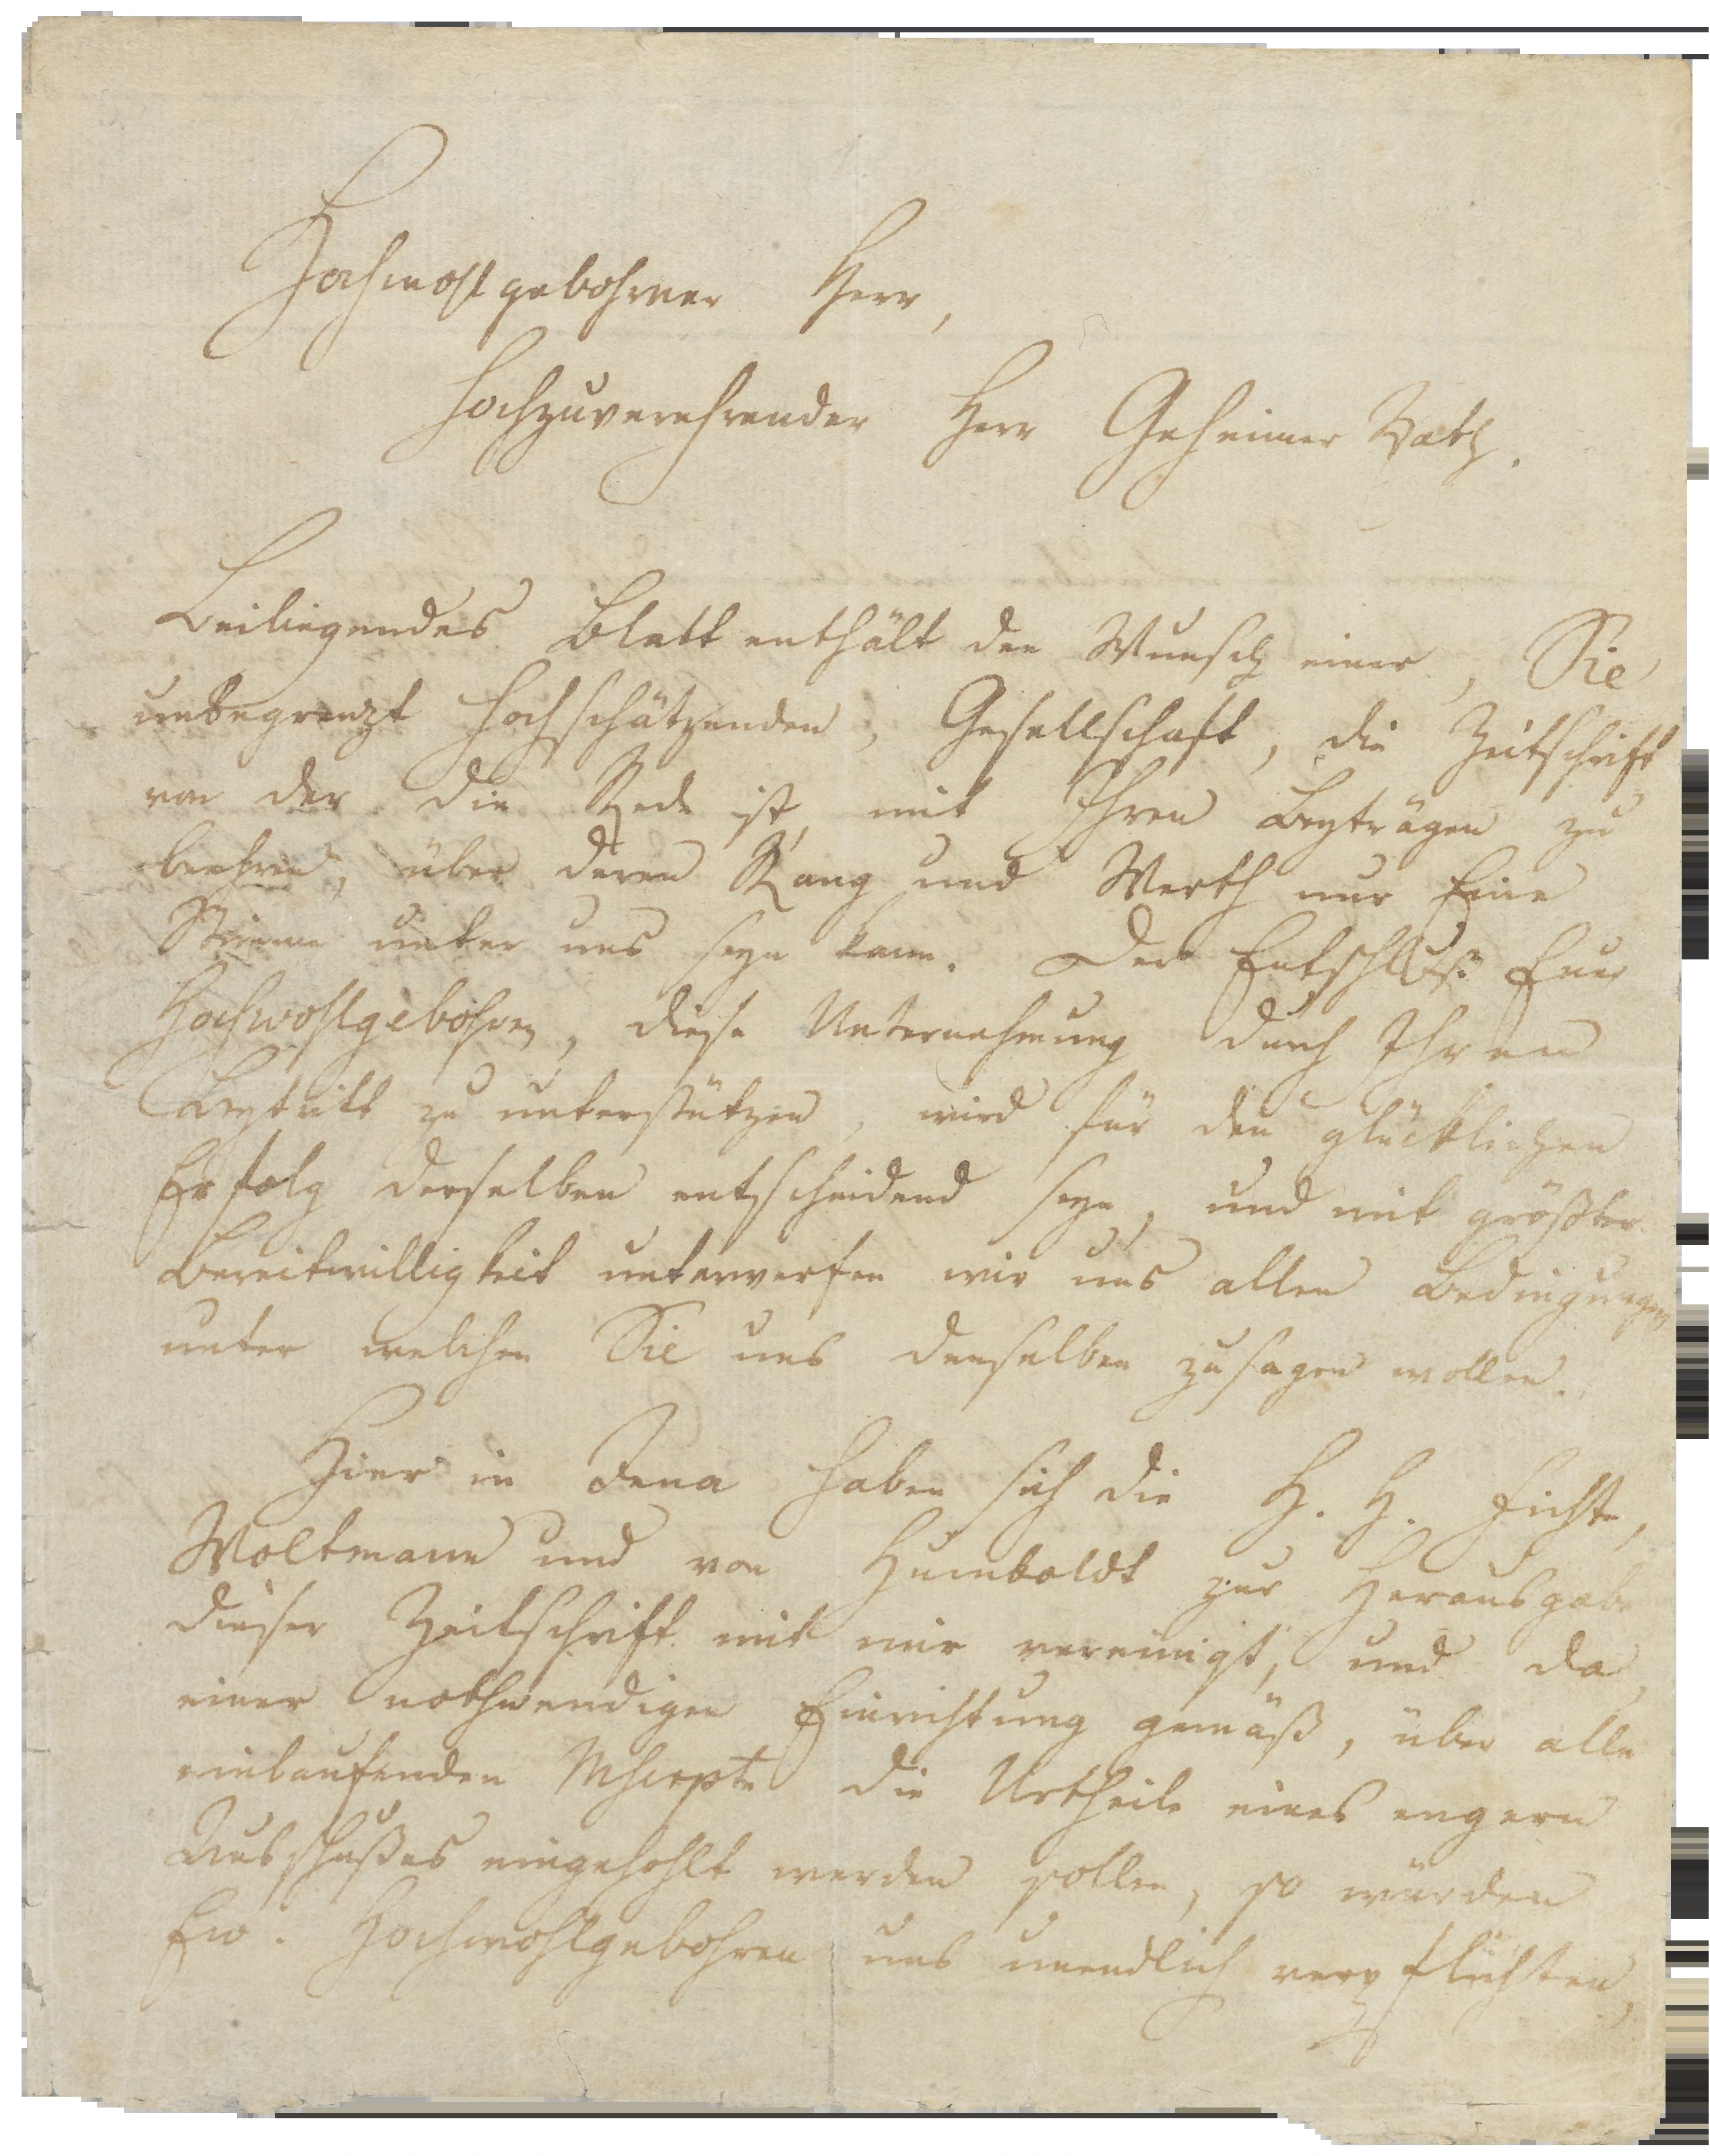 Hochwohlgebohrner Herr,
Hochzuverehrender Herr Geheimer Rath.
Beiliegendes Blatt enthält den Wunsch einer, Sie
unbegrenzt hochschätzenden, Gesellschaft, die Zeitschrift
von der die Rede ist, mit Ihren Beyträgen zu
beehren, über deren Rang und Werth nur Eine
Stimme unter uns seyn kann. Der Entschluß Euer
Hochwohlgebohren, diese Unternehmung durch Ihren
Beytritt zu unterstützen, wird für den glücklichen
Erfolg derselben entscheidend seyn, und mit größter
Bereitwilligkeit unterwerfen wir uns allen Bedingungen
unter welchen Sie uns denselben zusagen wollen.
Hier in Jena haben sich die H. H. Fichte,
Woltmann und von Humboldt zur Herausgabe
dieser Zeitschrift mit mir vereinigt, und da,
einer nothwendigen Einrichtung gemäß, über alle
einlaufenden Mscrpte die Urtheile eines engern
Ausschußes eingehohlt werden sollen, so würden
Ew. Hochwohlgebohren uns unendlich verpflichten,